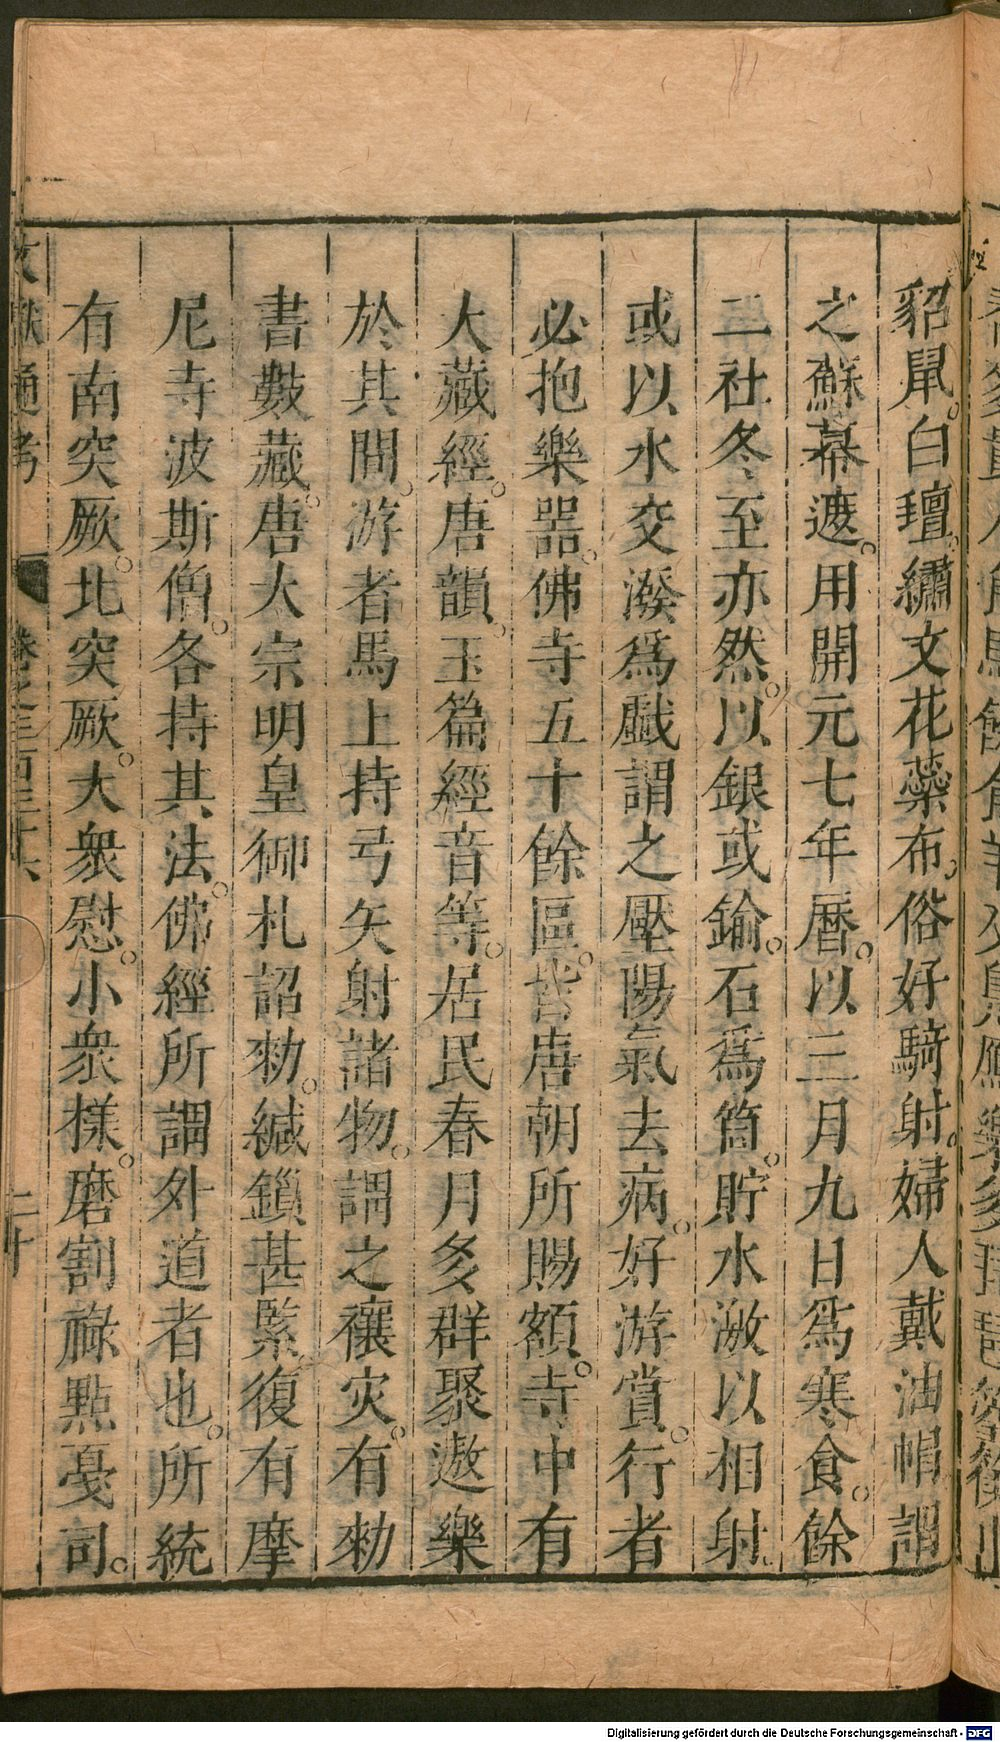 貂鼠。白㲲。繡文花蘂布。俗好騎射。婦人戴油帽謂
之蘇幕遮。用開元七年曆。以三月九日爲寒食。餘
二社冬至亦然。以銀或鍮。石爲筒。貯水激以相射。
或以水交潑爲戱謂之壓陽氣去病。好游賞。行者
必抱樂噐。佛寺五十餘區。皆唐朝所賜額。寺中有
大藏經。唐韻。玉篇經音等。居民春月多群聚遨樂
於其間。游者馬上持弓矢射諸物。謂之禳灾。有勑
書數藏。唐太宗明皇御札詔勑。緘鎖甚緊復有摩
尼寺波斯僧。各持其法。佛經所謂外道者也。所統
有南突厥。北突厥。大衆慰。小衆樣。磨割祿點戞司。
文獻通考 卷之三百三十六 二十
Digitalisierung gefördert durch die Deutsche Forschungsgemeinschaft - DFG